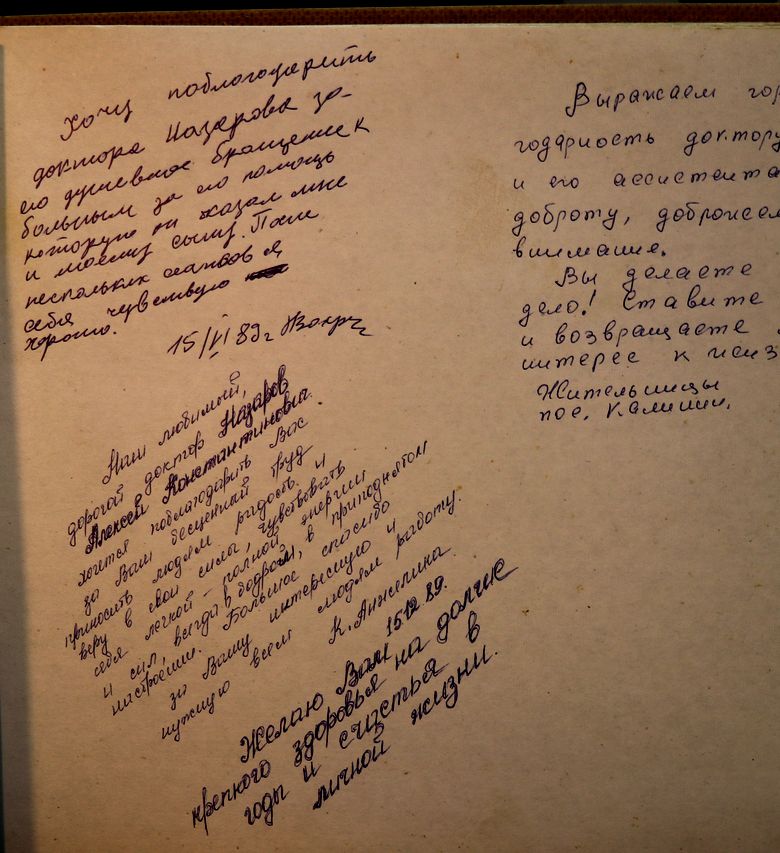 Хочу поблагодарить
доктора Назарова за
его душевное обращение к
больным за его помощь
которую он оказал мне
и моему сыну. После
нескольких сеансов я
себя чувствую
хорошо.
15/VI 89г
Наш любимый,
дорогой доктор Назаров
Алексей Константинович.
хочется поблагодарить Вас
за Ваш бесценный труд
приносить людям радость и
веру в свои силы, чувствовать
себя легкой - полной энергии
и сил, всегда в бодром, в приподнятом
настроении. Большое спасибо
за Вашу интересную и
нужную всем людям работу.
К. Анжелика
15.12.89.
Желаю Вам
крепкого здоровья на долгие
годы и счастья в
личной жизни.
Выражаем
годарность доктору
и его ассистента
доброту,
внимание.
Вы делаете
дело! Ставите
и возвращаете
интерес к
Жительницы
пос. Калинин.